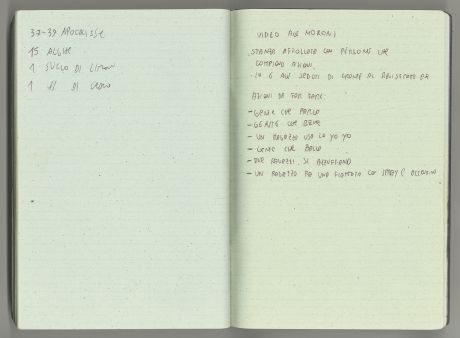 37-39 APOCALISSE
15 ALGHE
1 SUCCO DI LIMONE
1 // DI
VIDEO AGE MORONI
STANZA AFFOLLATA CON PERSONE CHE
COMPIONO AZIONI.
- IO E AGE SEDUTI DI FRONTE AL REGISTRATORE
AZIONI DA FAR FARE:
- GENTE CHE PARLA
- GENTE CHE BEVE
- UN RAGAZZO USA LO YO YO
- GENTE CHE BALLA
- DUE RAGAZZI SI AZZUFFANO
- UN RAGAZZO FA UNA FIAMMATA CON SPRAY E ACCENDINO